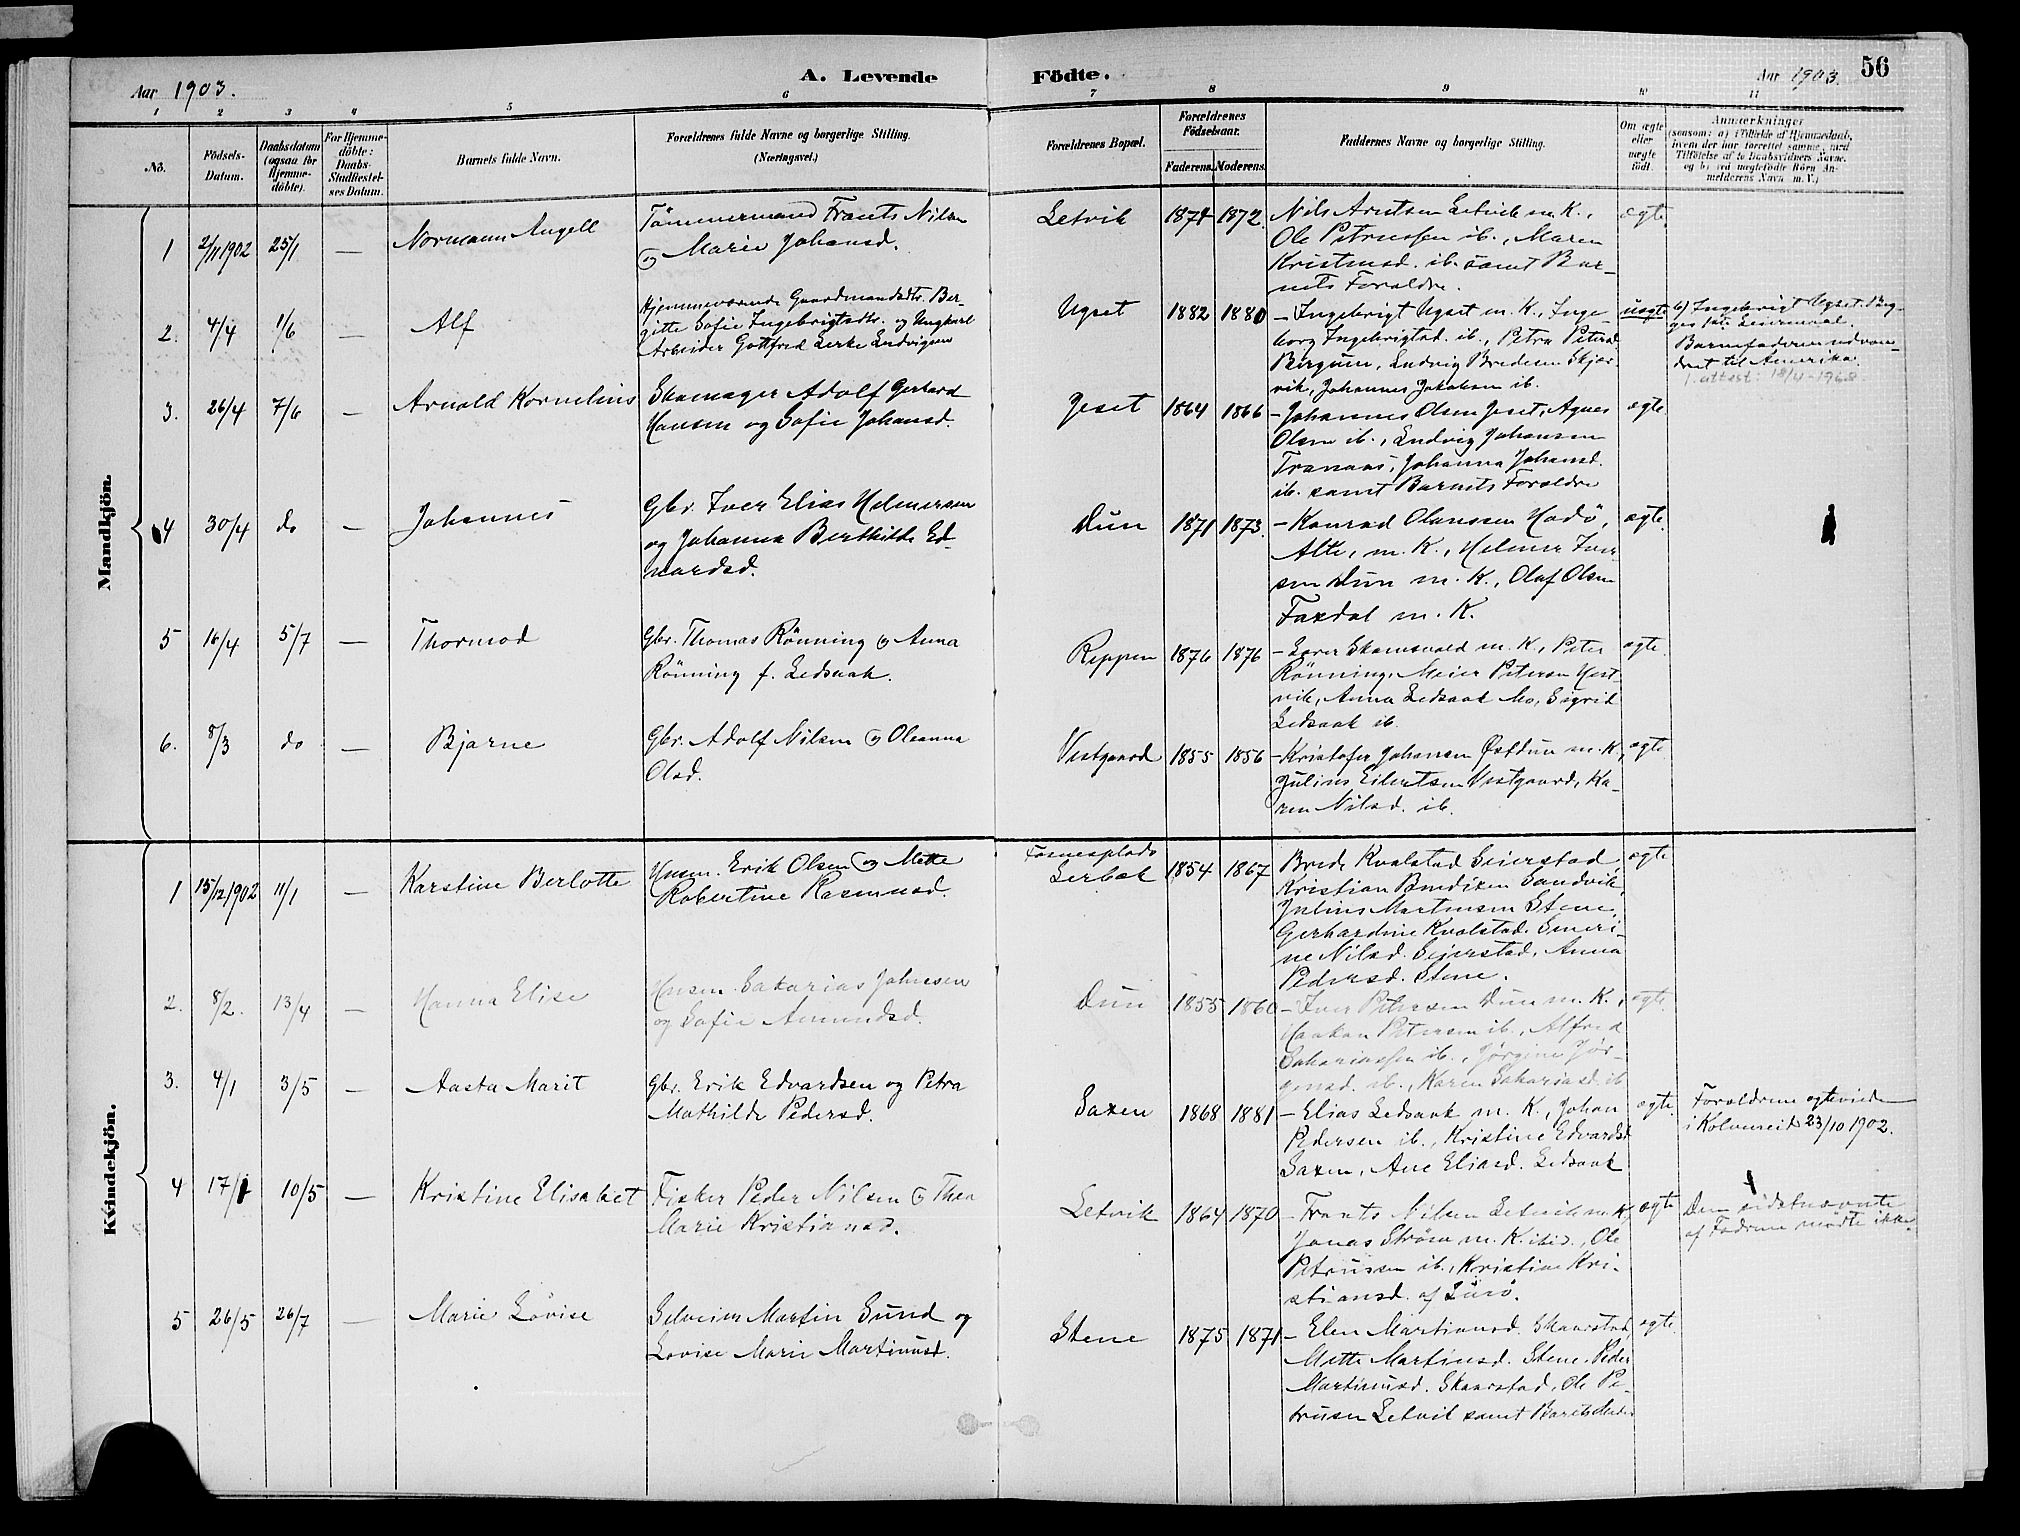 Aar 1903.
A. Levende
Födte.
Aar 1903.
56
1 2 3 4 5 6 7 8 9 10 11
No.
Födsels-
Datum.
Daabsdatum
(ogsaa for
Hjemme-
döbte).
For Hjemme-
döbte:
Daabs-
Stadfæstel-
ses Datum.
Barnets fulde Navn.
Forældrenes fulde Navne og borgerlige Stilling.
(Næringsvei.)
Forældrenes Bopæl.
Forældrenes
Födselsaar.
Faderens. Moderens.
Faddernes Navne og borgerlige Stilling.
Om ægte
eller
uægte
födt.
Anmærkninger
(saasom: a) i Tilfælde af Hjemmedaab,
hvem der har forrettet samme, med
Tilföielse af to Daabsvidners Navne,
og b) ved uægtefödte Börn An-
melderens Navn m. V.)
Mandkjön.
1 2/11 1902 25/1 — Normann Angell
Tömmermand Frants Nilsen
og Marie Johansd.
Letvik 1874 1872
Nils Arntsen Letvik m. K.,
Ole Petrussen ib., Maren
Kristensd. ib. samt Bar-
nets Foreldre.
ægte.
2. 4/4 1/6 — Alf
Hjemmeværende Gaardmandsdtr. Ber-
gitte Sofie Ingebrigtsdtr. og Ungkarl
Arbeider Gottfred Lerke Ludvigsen
Ugset 1882 1880
— Ingebrigt Ugset m. K., Inge
borg Ingebrigtsd. ib., Petra Petersd
Bergsen, Ludvig Bredesen Skjær-
vik, Johannes Jakobsen ib.
uægte
b) Ingebrigt Ugset.
Barnefaderen udvan-
dret til Amerika.
attest: 18/4-1968
3. 26/4 7/6 — Arnold Kornelius
Skomager Adolf Gerhard
Hansen og Sofie Johansd.
Jeset 1864 1866
— Johannes Olsen Jeset, Agnes
Olsen ib., Ludvig Johansen
Tranaas, Johanna Johansd.
ib. samt Barnets Foreldre
ægte.
4 30/4 do — Johannes
Gbr. Iver Elias Helmersen
og Johanna Berthilde Ed-
vardsd.
Dun 1871 1873.
— Konrad Olaussen Hadö,
Alte, m. K., Helmer Iver
sen Dun m. K., Olaf Olsen
Faxdal m. K.
ægte.
5 16/4 5/7 — Thormod
Gbr. Thomas Rönning og Anna
Rönning f. Ledsaak.
Reppen 1876 1876
— Lærer Skamsvold m. K., Peter
Rönning, Meier Petersen Hest-
vik, Anna Ledsaak Mo, Sigrid
Ledsaak ib.
ægte.
6. 8/3 do — Bjarne
Gbr. Adolf Nilsen og Oleanna
Olsd.
Vestgaard 1855 1856
— Kristofer Johansen Östdun m. K.,
Julius Eilertsen Vestgaard, Ka-
ren Nilsd. ib.
ægte.
Kvindekjön.
1 15/12 1902 11/1 — Karstine Berlotte
Husm. Erik Olsen og Mette
Robertine Rasmusd.
Fosnesplads
Lerbak 1854 1867
Brede Kvalstad Seierstad,
Kristian Benediksen Sandvik,
Julius Martinsen Stene,
Gerhardine Kvalstad. Smeri-
ne Nilsd. Seierstad, Anna
Pedersd. Stene.
ægte
2. 8/2. 13/4 — Hanna Elise
Husm. Sakarias Johnesen
og Sofie Amundsd.
Dun 1855 1860
— Iver Petersen Dun m. K.,
Haakon Petersen ib., Alfred
Sakariassen ib., Jørgine Jør-
gensd. ib., Karen Sakariasd. ib
ægte.
3. 4/1 3/5 — Aasta Marit
Gbr. Erik Edvardsen og Petra
Mathilde Pedersd.
Saxen 1868 1881
— Elias Ledsaak m. K., Johan
Pedersen ib., Kristine Edvardsd
Saxen, Ane Eliasd. Ledsaak
ægte.
Foreldrene egteviede
i Kolvereid 23/10 1902.
4 17/1 10/5 — Kristine Elisabet
Fisker Peder Nilsen og Thea
Marie Kristiansd.
Letvik 1864 1870
— Frants Nilsen Letvik m. K,
Jonas Ström m. K. ibid., Ole
Petrussen ib., Kristine Kri-
stiansd. af
ægte
Den sidstnævnte
af Fadrene mödte ikke.
5 26/5 26/7 — Marie Lovise
Selveier Martin Sund og
Lovise Marie Martinusd.
Stene 1875 1871
— Elen Martinusd. Skaarstad,
Mette Martinsd. Stene, Peder
Martinusd. Skaarstad, Ole Pe-
trusen Letvik samt Barnets Moder
ægte.